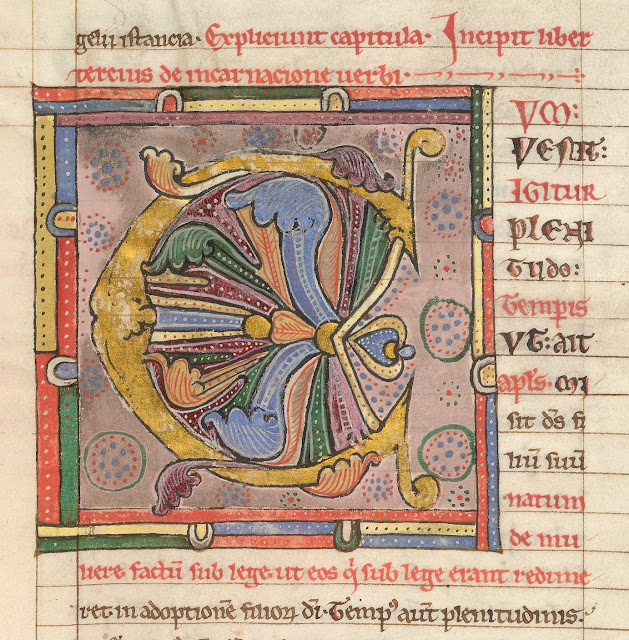 gelii istancia· Expliciunt capitula· Incipit liber
tercius de incarnacione uerbi·
CVM:
VENIT:
IGITUR
PLENI
TUDO:
Tempis
VT: AIT
apls· mi
sit ds fi
liū suū
natum
de mu
liere factū sub lege· ut eos q̇ sub lege erant redime
ret in adoptionē filioꝝ di· Temp᾿ aut plenitudinis·